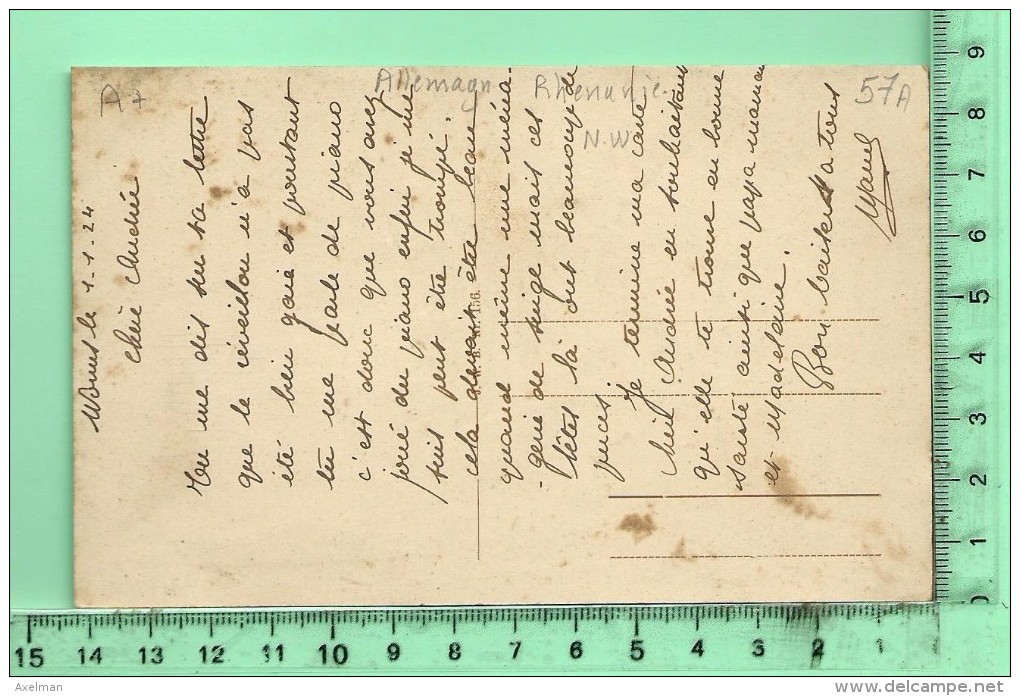 A7
Allemagn Rhenanie.
N.W
57A
le 1.1.24
Chère Andrée
Tu me dis sur ta lettre
que le réveillon n'a pas
été bien gaie et pourtant
tu me parle de piano
c'est donc que vous avez
joué du piano enfin je me
suis peut être trompé.
cela devait être beau
quand même une ména-
-gerie de singe mais ces
bêtes là ont beaucoup de
puces.
Je termine ma carte
chère Andrée en souhaitant
qu'elle te trouve en bonne
santé ainsi que papa maman
et Madeleine.
Bon baiser à tous
Marcel
156.
15 14 13 12 11 10 9 8 7 6 5 4 3 2 1
1 2 3 4 5 6 7 8 9
© Axelman
www.delcampe.net